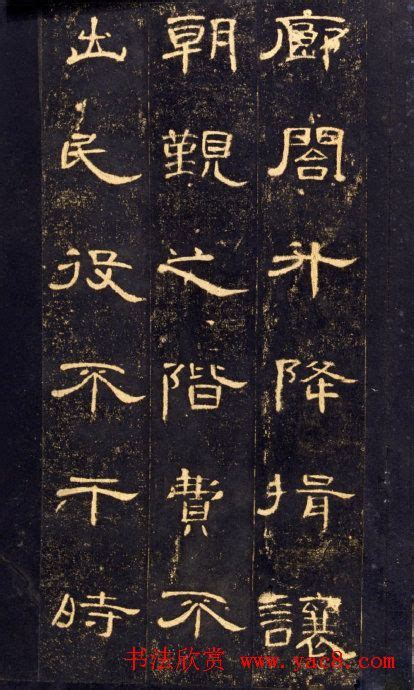 廊閤升降揖讓
朝覲之階費不
出民役不干時
书法欣赏 www.yac8.com